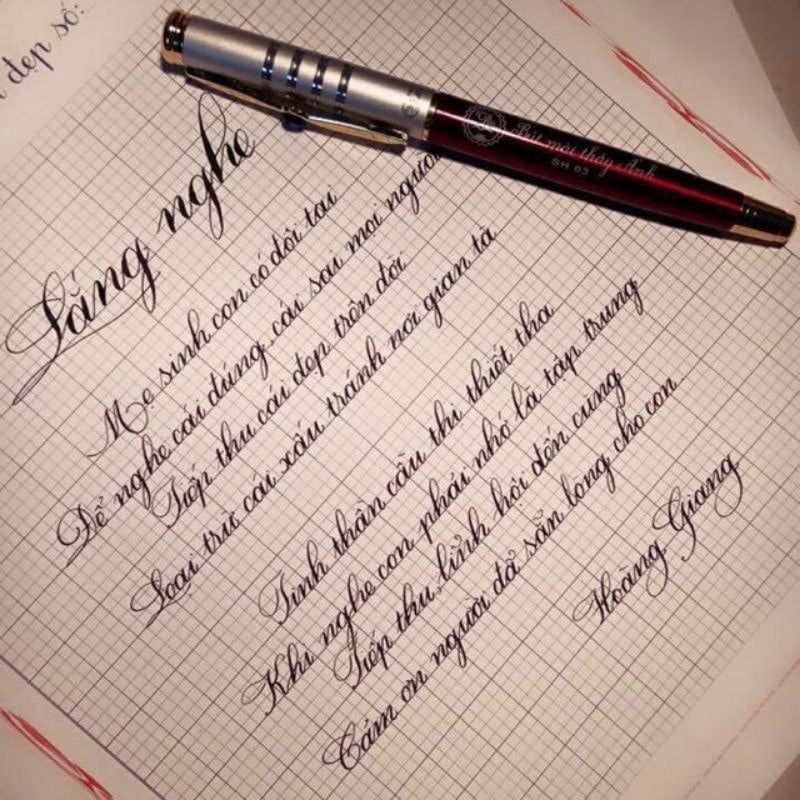 đẹp số:
Bút mài thầy Ánh
SH 03
Lắng nghe
Mẹ sinh con có đôi tai
Để nghe cái đúng, cái sai mọi người
Tiếp thu cái đẹp trên đời
Loại trừ cái xấu tránh nơi gian tà
Tinh thần cầu thị thiết tha
Khi nghe con phải nhớ là tập trung
Tiếp thu, lĩnh hội đến cùng
Cảm ơn người đã sẵn lòng cho con
Hoàng Giang